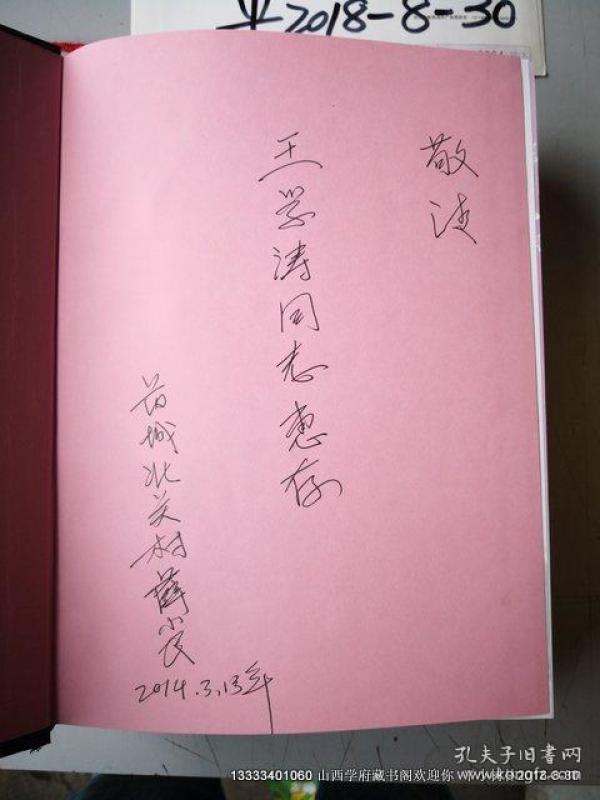 2018-8-30
敬送
王学涛同志惠存
芮城北关村薛小
2014.3.13年
孔夫子旧书网
13333401060 山西学府藏书阁欢迎你
www.kongfz.com